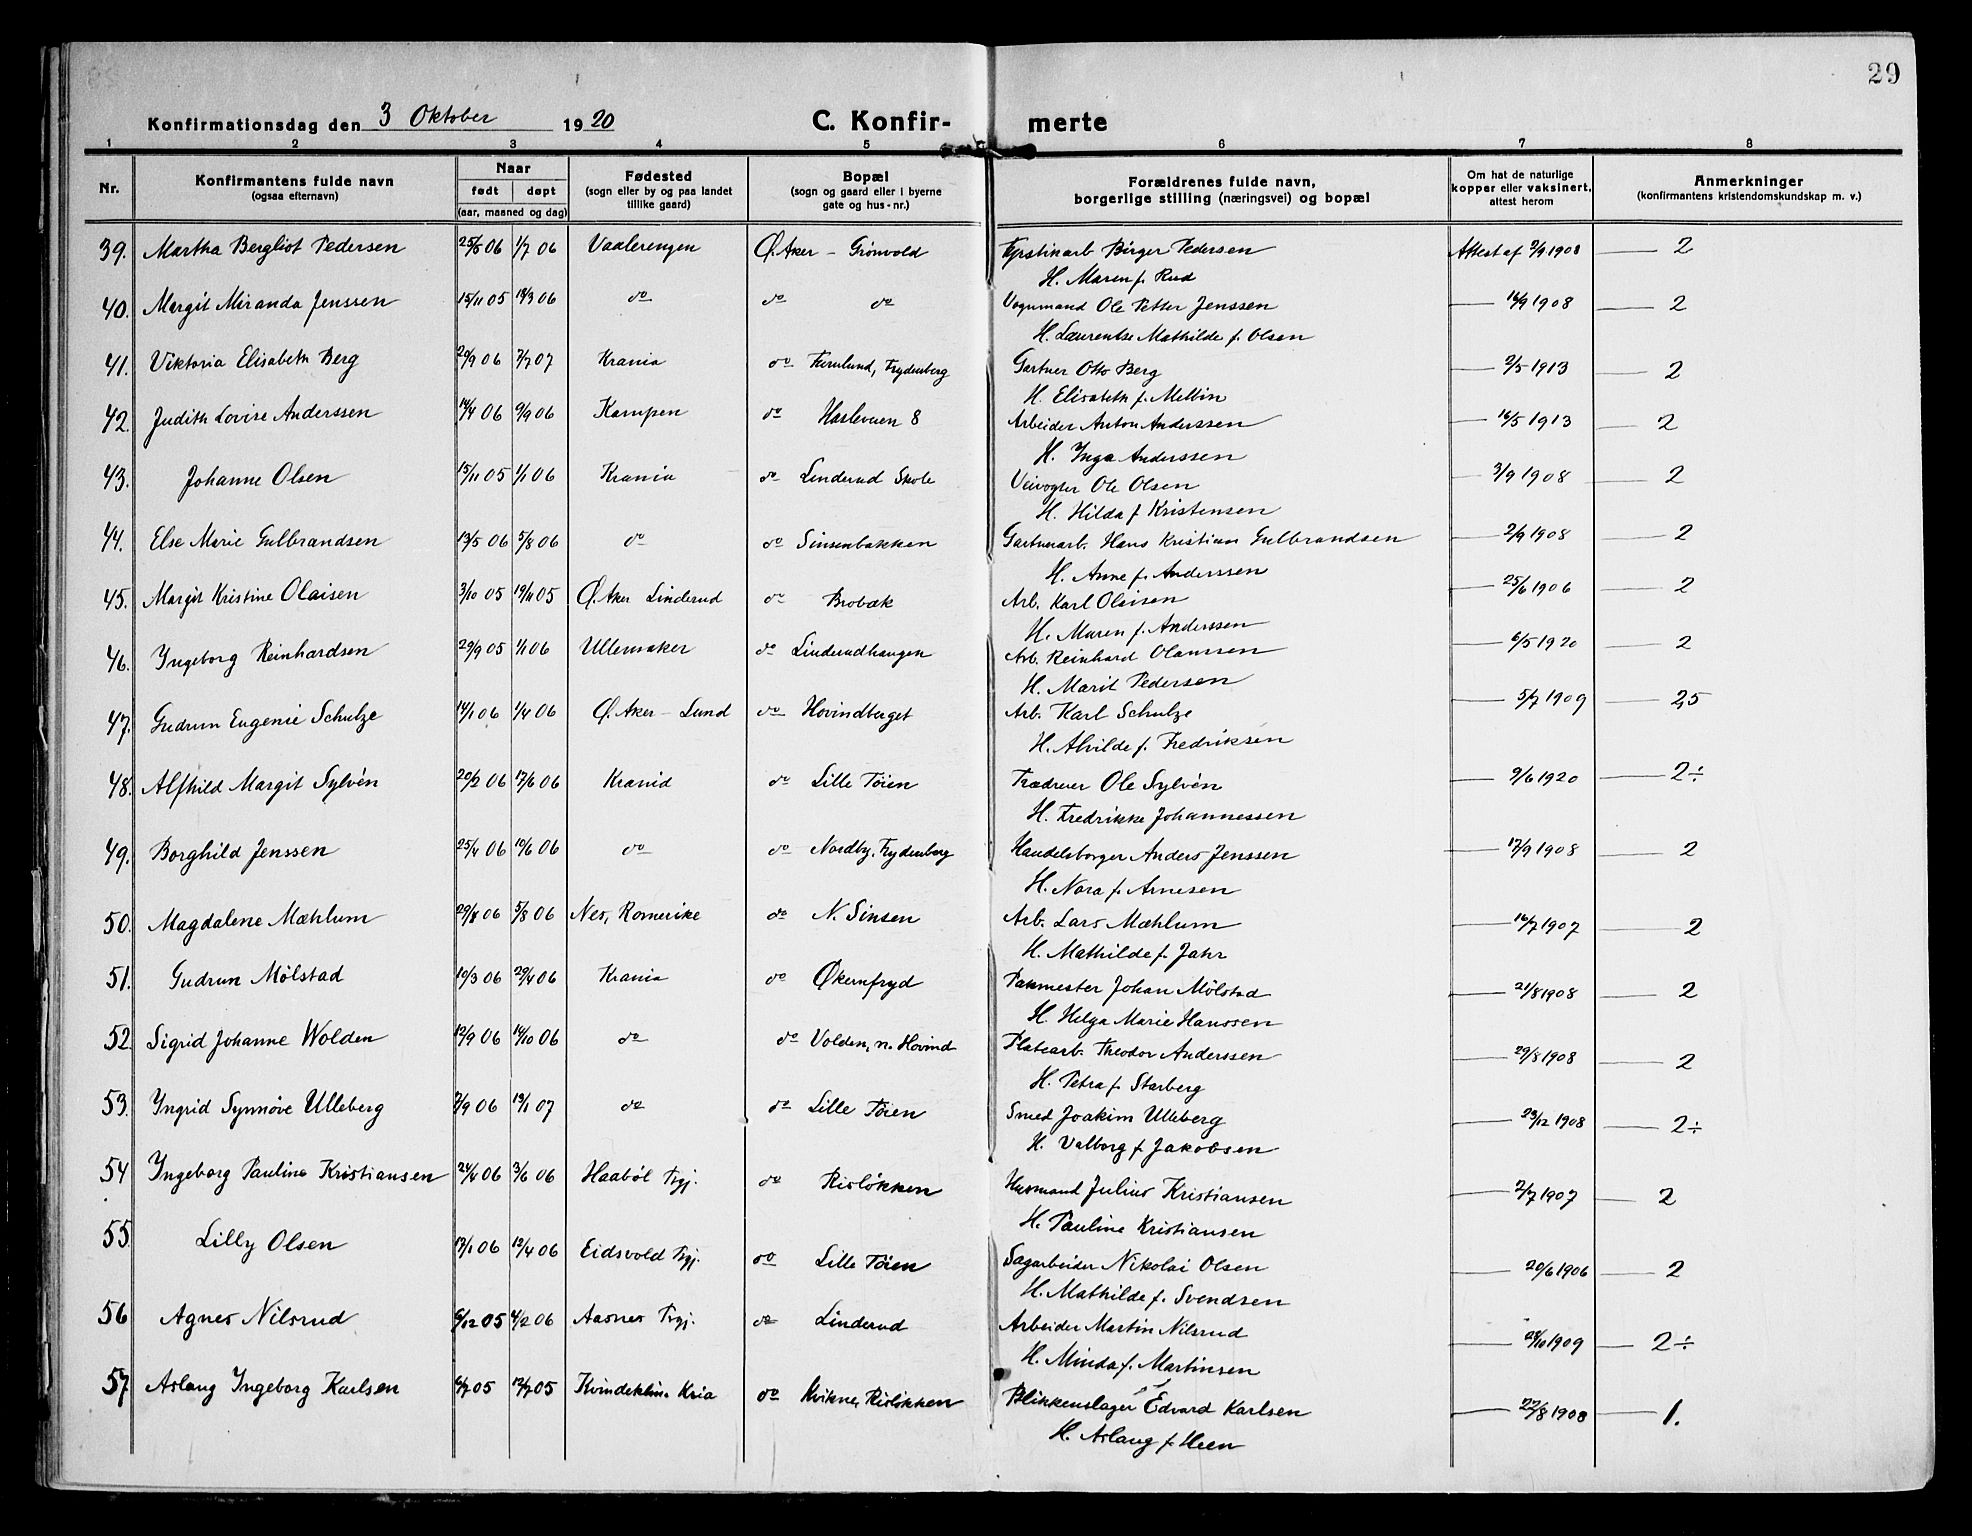 29
Konfirmationsdag den 3 Oktober 1920 C. Konfir- merte
1 2 3 4 5 6 7 8
Nr.
Konfirmantens fulde navn
(ogsaa efternavn)
Naar
født døpt
(aar, maaned og dag)
Fødested
(sogn eller by og paa landet
tillike gaard)
Bopæl
(sogn og gaard eller i byerne
gate og hus-nr.)
Forældrenes fulde navn,
borgerlige stilling (næringsvei) og bopæl
Om hat de naturlige
kopper eller vaksinert,
attest herom
Anmerkninger
(konfirmantens kristendomskundskap m. v.)
39. Martha Bergliot Pedersen 25/5 06 1/7 06 Vaalerengen Ø. Aker - Grönvold Fyrstikarb Birger Pedersen Attest af 2/9 1908 — 2
H. Maren f. Rud
40. Margit Miranda Jenssen 15/11 05 18/3 06 do do do Vognmand Ole Petter Jenssen — 16/9 1908 — 2
H. Laurentse Mathilde f. Olsen
41. Viktoria Elisabeth Berg 20/9 06 7/7 07 Krania do Furulund, Frydenberg Gartner Otto Berg — 2/5 1913 — 2
H. Elisabeth f. Mellin
42. Judith Lovise Anderssen 14/4 06 9/9 06 Kampen do Hasleveien 8 Arbeider Anton Anderssen — 16/5 1913 — 2
H. Inga Anderssen
43. Johanne Olsen 15/11 05 1/1 06 Krania do Linderud Skole Veivogter Ole Olsen — 3/9 1908 — 2
H. Hilda f Kristensen
44. Else Marie Gulbrandsen 13/5 06 5/8 06 do do Sinsenbakken Gartnerarb. Hans Kristian Gulbrandsen — 2/9 1908 — 2
H. Anne f. Anderssen
45. Margit Kristine Olaisen 3/10 05 19/11 05 Ø. Aker Linderud do Brobæk Arb. Karl Olaisen — 25/6 1906 — 2
H. Maren f. Anderssen
46. Ingeborg Reinhardsen 29/9 05 1/1 06 Ullensaker do Linderudhaugen Arb. Reinhard Olaussen — 6/5 1920 — 2
H. Marit Pedersen
47. Gudrun Eugenie Schulze 14/1 06 1/4 06 Ø. Aker - Lund do Hovindberget Arb. Karl Schulze — 5/7 1909 — 2,5
H. Alvilde f. Fredriksen
48. Alfhild Margit Sylvén 20/2 06 17/6 06 Krania do Lille Töien Trædreier Ole Sylvén — 9/6 1920 — 2÷
H. Fredrikke Johannessen
49. Borghild Jenssen 25/4 06 10/6 06 do do Nordby, Frydenberg Handelsborger Anders Jenssen — 17/9 1908 — 2
H. Nora f. Arnesen
50. Magdalene Mæhlum 5/8 06 Nes, Romerike do N. Sinsen Arb. Lars Mæhlum — 16/7 1907 — 2
H. Mathilde f. Jahr
51. Gudrun Mölstad 10/3 06 29/4 06 Krania do Økernfryd Pakmester Johan Mölstad — 21/8 1908 — 2
H. Helga Marie Hanssen
52. Sigrid Johanne Wolden 12/9 06 14/10 06 do do Volden, n. Hovind Platearb. Theodor Anderssen — 29/8 1908 — 2
H. Petra f. Starberg
53. Ingrid Synnöve Ulleberg 7/9 06 13/1 07 do do Lille Töien Smed Joakim Ulleberg — 23/12 1908 — 2÷
H. Valborg f. Jakobsen
54 Ingeborg Pauline Kristiansen 24/4 06 3/6 06 Haaböl Trgj. do Rislökken Husmand Julius Kristiansen — 2/7 1907 — 2
H. Pauline Kristiansen
55. Lilly Olsen 13/1 06 12/4 06 Eidsvold Trgj. do Lille Töien Sagarbeider Nikolai Olsen — 20/6 1906 — 2
H. Mathilde f. Svendsen
56 Agnes Nilsrud 6/12 05 4/2 06 Aasnes Trgj. do Linderud Arbeider Martin Nilsrud — 28/10 1909 — 2÷
H. Minda f. Martinsen
57 Aslaug Ingeborg Karlsen 05 05 Kvindeklin. Kria do Kvikne, Rislökken Blikkenslager Edvard Karlsen — 27/8 1908 — 1.
H. Aslaug f. Heen